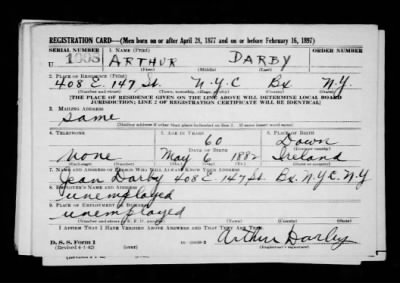 REGISTRATION CARD—(Men born on or after April 28, 1877 and on or before February 16, 1897)
SERIAL NUMBER 1. NAME (Print) ORDER NUMBER
U 1698 ARTHUR DARBY
(First) (Middle) (Last)
2. PLACE OF RESIDENCE (Print)
408 E. 147 St. N.Y.C Bx. N.Y.
(Number and street) (Town, township, village, or city) (County) (State)
[THE PLACE OF RESIDENCE GIVEN ON THE LINE ABOVE WILL DETERMINE LOCAL BOARD
JURISDICTION; LINE 2 OF REGISTRATION CERTIFICATE WILL BE IDENTICAL]
3. MAILING ADDRESS
Same
4. TELEPHONE 5. AGE IN YEARS 6. PLACE OF BIRTH
60 Down
DATE OF BIRTH
None May 6 1882 Ireland
7. NAME AND ADDRESS OF PERSON WHO WILL ALWAYS KNOW YOUR ADDRESS
Jean Darby 408 E. 147 St. Bx. N.Y.C. N.Y
8. EMPLOYER'S NAME AND ADDRESS
unemployed
9. PLACE OF EMPLOYMENT OR BUSINESS
unemployed
I AFFIRM THAT I HAVE VERIFIED ABOVE ANSWERS AND THAT THEY ARE TRUE.
D. S. S. Form 1
(Revised 4-1-42)
Arthur Darby
(Registrant's signature)